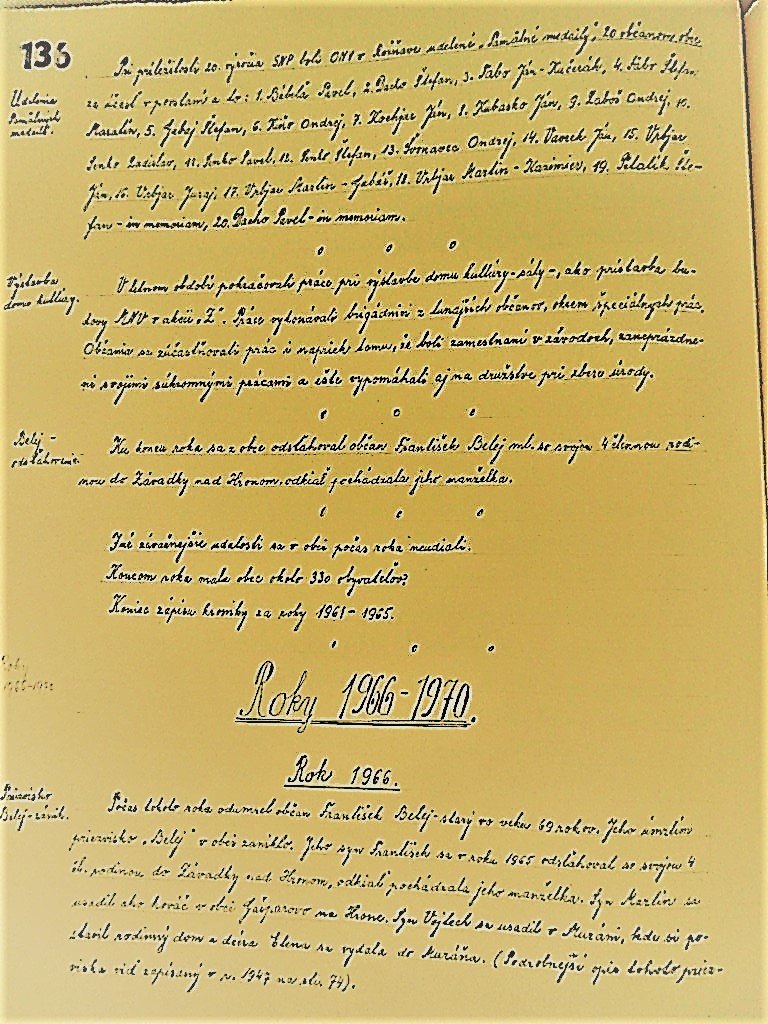 136
Udelenie
Pamätných
medailí.
Pri príležitosti 20. výročia SNP bolo ONV v Rožňave udelené „Pamätné medaily" 20 občanom obce
za účasť v povstaní a to: 1. Bebela Pavel, 2. Dacho Štefan, 3. Fabo Ján - Kučerák, 4. Fábo Štefan
Maralin, 5. Gabaj Štefan, 6. Kiňo Ondrej, 7. Kochjar Ján, 8. Kubasko Ján, 9. Laboš Ondrej, 10.
Senko Ladislav, 11. Senko Pavel, 12. Senko Štefan, 13. Ondrej, 14. Vavrek Ján, 15. Vrbjar
Ján, 16. Vrbjar Juraj, 17. Vrbjar Martin - 18. Vrbjar Martin - Kazimier, 19. Petalik Šte-
fan - in memoriam, 20. Dacho Pavel - in memoriam.
Výstavba
domu kultúry.
V letnom období pokračovali práce pri výstavbe domu kultúry - sály -, ako prístavba bu-
dovy MNV v akcii „Z". Práce vykonávali brigádnici z tunajších občanov, okrem špeciálnych prác.
Občania sa zúčastňovali prác i napriek tomu, že boli zamestnaní v závodoch, zaneprázdne-
ní svojimi súkromnými prácami a ešte vypomáhali aj na družstve pri zbere úrody.
Belej -
odsťahovanie.
Ku koncu roka sa z obce odsťahoval občan František Belej ml. so svojou 4 člennou rodi-
nou do Závadky nad Hronom, odkiaľ pochádzala jeho manželka.
Iné závažnejšie udalosti sa v obci počas roka neudiali.
Koncom roka mala obec okolo 330 obyvateľov.
Koniec zápisu kroniky za roky 1961 - 1965.
Roky
1966-1970
Roky 1966-1970.
Rok 1966.
Priezvisko
Belej - zánik.
Počas tohoto roka odumrel občan František Belej - starý vo veku 69 rokov. Jeho úmrtím
priezvisko „Belej" v obci zaniklo. Jeho syn František sa v roku 1965 odsťahoval so svojou 4
čl. rodinou do Závadky nad Hronom, odkiaľ pochádzala jeho manželka. Syn Martin sa
usadil ako kováč v obci Gašparovo na Hrone. Syn Vojtech sa usadil v Muráni, kde si po-
stavil rodinný dom a dcéra Elena sa vydala do Muráňa. (Podrobnejší opis tohoto priez-
viska viď zapísaný v r. 1947 na str. 74).